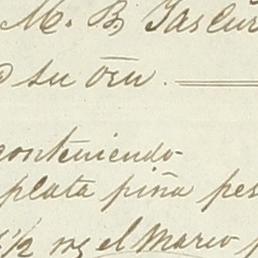 M. B. Tascur
@ su oru.
conteniendo
plata piña pes
1/2 mrs el Marco p